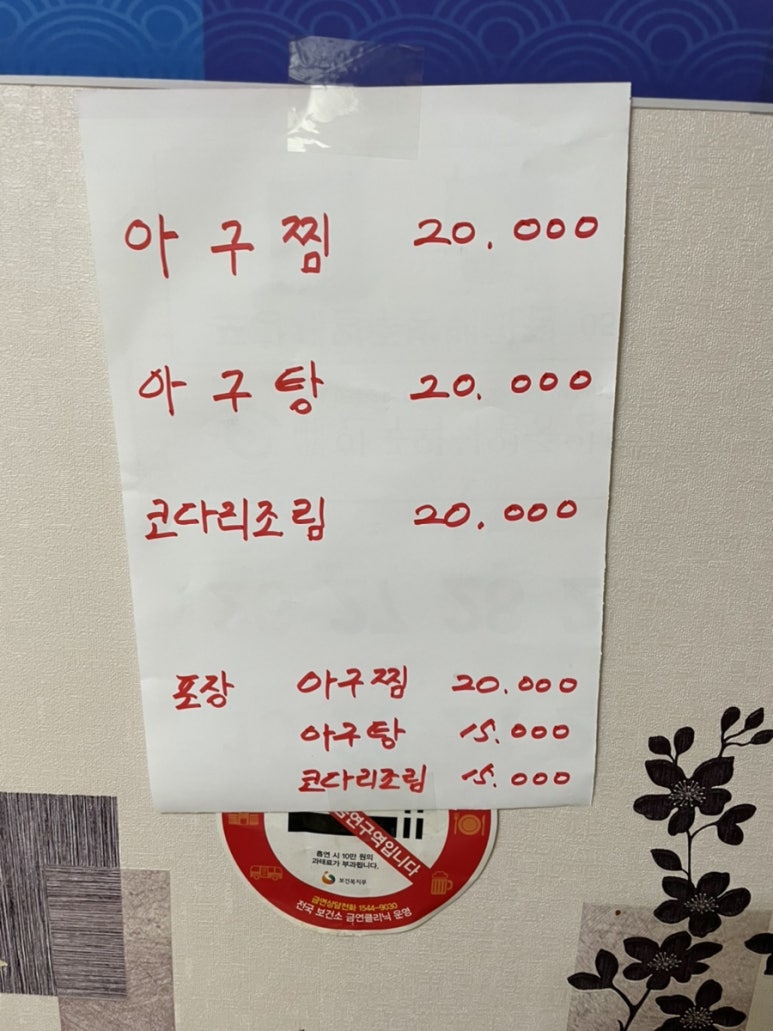 아구찜 20.000
아구탕 20.000
코다리조림 20.000
포장 아구찜 20.000
아구탕 15.000
코다리조림 15.000
연구역입니다
흡연 시 10만 원의
과태료가 부과됩니다.
보건복지부
금연상담전화 1544-9030
전국 보건소 금연클리닉 운영